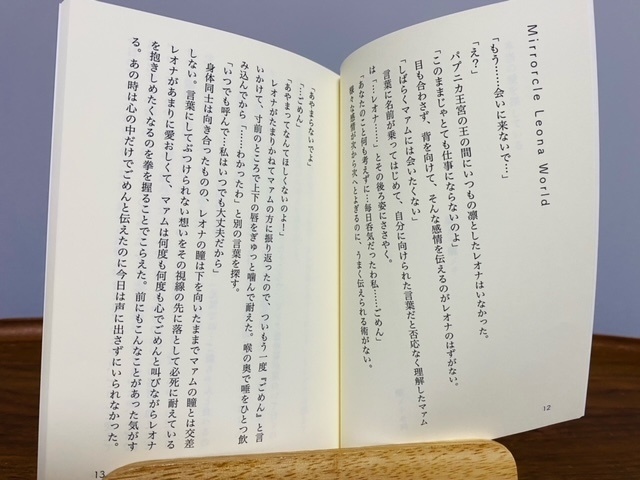 Mirrorcle Leona World
「もう……会いに来ないで…」
「え？」
パプニカ王宮の王の間にいつもの凛としたレオナはいなかった。
「このままじゃとても仕事にならないのよ」
目も合わさず、背を向けて、そんな感情を伝えるのがレオナのはずがない。
「しばらくマァムには会いたくない」
言葉に名前が乗ってはじめて、自分に向けられた言葉だと否応なく理解したマァム
は「…レオナ……」とその後ろ姿にささやく。
「あなたのこと何も考えずに…毎日呑気だったわ私……ごめん」
様々な感情が次から次へとよぎるのに、うまく伝えられる術がない。
12
「あやまらないでよ」
「…ごめん」
「あやまってなんてほしくないのよ！」
レオナがたまりかねてマァムの方に振り返ったので、ついもう一度『ごめん』と言
いかけて、寸前のところで上下の唇をぎゅっと噛んで耐えた。喉の奥で唾をひとつ飲
み込んでから「……わかったわ」と別の言葉を探す。
「いつでも呼んで…私はいつでも大丈夫だから」
身体同士は向き合ったものの、レオナの瞳は下を向いたままでマァムの瞳とは交差
しない。言葉にしてぶつけられない想いをその視線の先に落として必死に耐えている
レオナがあまりに愛おしくて、マァムは何度も何度も心でごめんと叫びながらレオナ
を抱きしめたくなるのを拳を握ることでこらえた。前にもこんなことがあった気がす
る。あの時は心の中だけでごめんと伝えたのに今日は声に出さずにいられなかった。
13